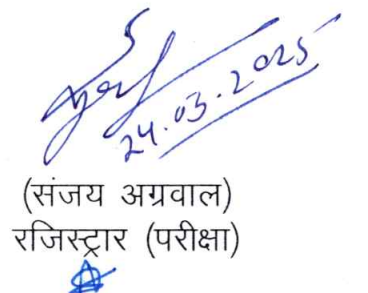 24.03.2025
(संजय अग्रवाल)
रजिस्ट्रार (परीक्षा)